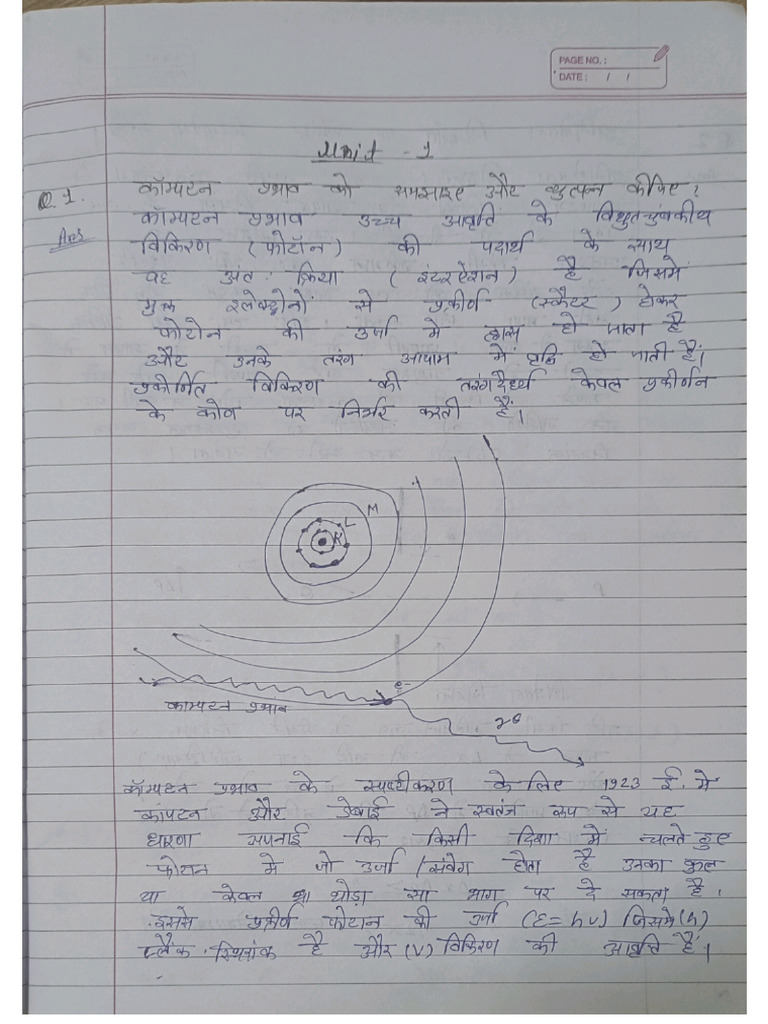 PAGE NO. :
DATE : / /
Unit - 1
Q.1. कॉम्पटन प्रभाव को समझाइए और व्युत्पन्न कीजिए ?
Ans कॉम्पटन प्रभाव उच्च आवृति के विधुतचुंबकीय
विकिरण (फोटॉन) की पदार्थ के साथ
वह अंत: क्रिया (इंटरऐशन) है जिसमें
मुक्त इलेक्ट्रोनों से प्रकीर्ण (स्कैटर) होकर
फोटोन की उर्जा मे ह्रास हो जाता है
और उनके तरंग आयाम में वृद्धि हो जाती हैं।
प्रकीर्णित विकिरण की तरंगदैर्ध्य केवल प्रकीर्णन
के कोण पर निर्भर करती हैं।
M
L
K
e-
काम्पटन प्रभाव
कॉम्पटन प्रभाव के स्पष्टीकरण के लिए 1923 ई. मे
कांपटन और डेबाई ने स्वतंत्र रूप से यह
धारणा अपनाई कि किसी दिशा में चलते हुए
फोटान मे जो उर्जा /संवेग होता है उनका कुल
या केवल थोड़ा सा भाग पर दे सकता है.
इससे प्रकीर्ण फोटान की उर्जा (E=hv) जिसमे (h)
प्लैंक स्थिरांक है और (v) विकिरण की आवृति हैं।